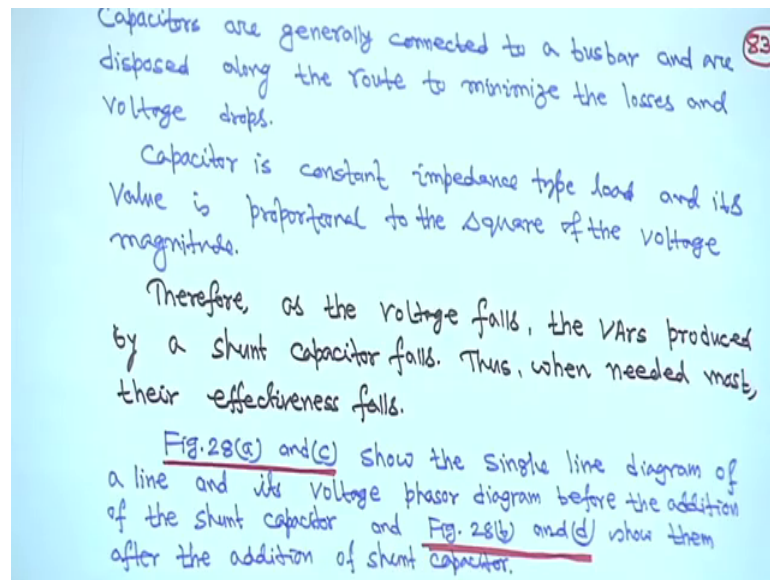 Capacitors are generally connected to a busbar and are
83
disposed along the route to minimize the losses and
voltage drops.
Capacitor is constant impedance type load and its
Value is proportional to the square of the voltage
magnitude.
Therefore, as the voltage falls, the VArs produced
by a shunt capacitor falls. Thus, when needed most,
their effectiveness falls.
Fig.28(a) and (c) show the single line diagram of
a line and its voltage phasor diagram before the addition
of the shunt capacitor and Fig. 28(b) and (d) show them
after the addition of shunt capacitor.